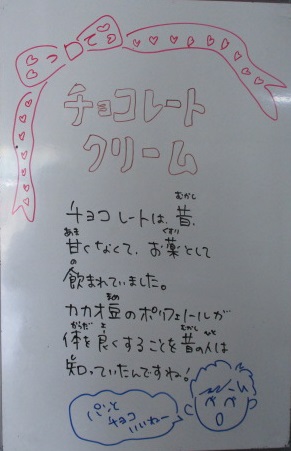 チョコレート
クリーム
チョコレートは、昔、
甘くなくて、お薬として
飲まれていました。
カカオ豆のポリフェノールが
体を良くすることを昔の人は
知っていたんですね！
パンと
チョコ
いいねー